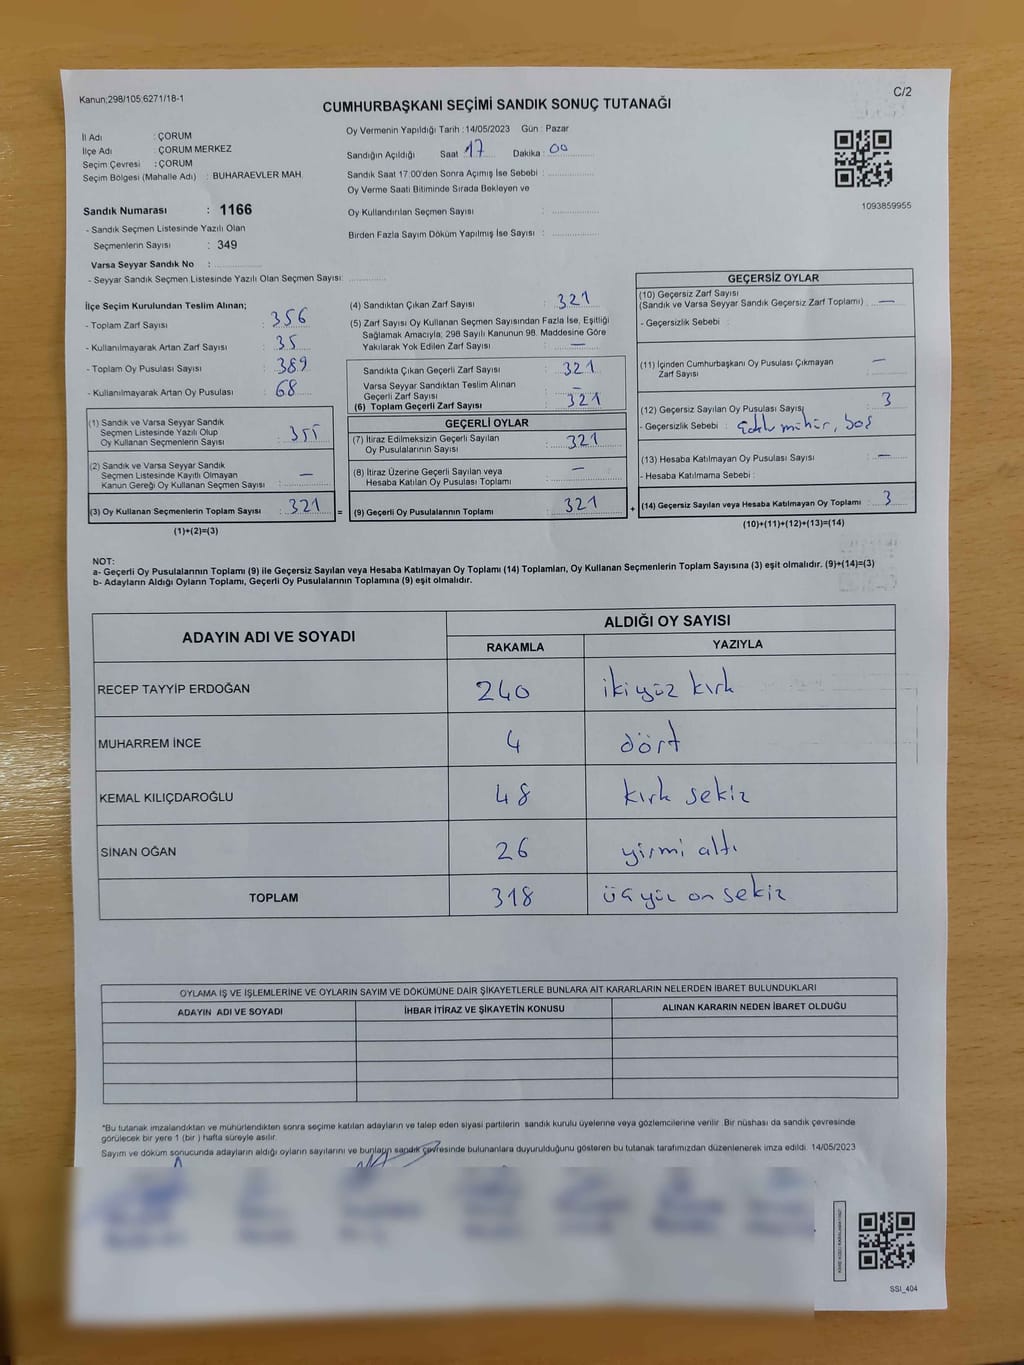 Kanun;298/105;6271/18-1
C/2
CUMHURBAŞKANI SEÇİMİ SANDIK SONUÇ TUTANAĞI
İl Adı : ÇORUM
İlçe Adı : ÇORUM MERKEZ
Seçim Çevresi : ÇORUM
Seçim Bölgesi (Mahalle Adı) : BUHARAEVLER MAH.
Sandık Numarası : 1166
- Sandık Seçmen Listesinde Yazılı Olan
Seçmenlerin Sayısı : 349
Varsa Seyyar Sandık No :
- Seyyar Sandık Seçmen Listesinde Yazılı Olan Seçmen Sayısı:
Oy Vermenin Yapıldığı Tarih : 14/05/2023 Gün : Pazar
Sandığın Açıldığı Saat 17 Dakika : 00
Sandık Saat 17.00'den Sonra Açımış İse Sebebi :
Oy Verme Saati Bitiminde Sırada Bekleyen ve
Oy Kullandırılan Seçmen Sayısı :
Birden Fazla Sayım Döküm Yapılmış İse Sayısı :
1093859955
İlçe Seçim Kurulundan Teslim Alınan;
- Toplam Zarf Sayısı : 356
- Kullanılmayarak Artan Zarf Sayısı : 35
- Toplam Oy Pusulası Sayısı : 389
- Kullanılmayarak Artan Oy Pusulası : 68
(1) Sandık ve Varsa Seyyar Sandık
Seçmen Listesinde Yazılı Olup
Oy Kullanan Seçmenlerin Sayısı :
(2) Sandık ve Varsa Seyyar Sandık
Seçmen Listesinde Kayıtlı Olmayan
Kanun Gereği Oy Kullanan Seçmen Sayısı : —
(3) Oy Kullanan Seçmenlerin Toplam Sayısı : 321 =
(1)+(2)=(3)
(4) Sandıktan Çıkan Zarf Sayısı : 321
(5) Zarf Sayısı Oy Kullanan Seçmen Sayısından Fazla İse, Eşitliği
Sağlamak Amacıyla; 298 Sayılı Kanunun 98. Maddesine Göre
Yakılarak Yok Edilen Zarf Sayısı : —
Sandıkta Çıkan Geçerli Zarf Sayısı : 321
Varsa Seyyar Sandıktan Teslim Alınan
Geçerli Zarf Sayısı : —
(6) Toplam Geçerli Zarf Sayısı : 321
GEÇERLİ OYLAR
(7) İtiraz Edilmeksizin Geçerli Sayılan
Oy Pusulalarının Sayısı : 321
(8) İtiraz Üzerine Geçerli Sayılan veya
Hesaba Katılan Oy Pusulası Toplamı : —
(9) Geçerli Oy Pusulalarının Toplamı : 321 +
GEÇERSİZ OYLAR
(10) Geçersiz Zarf Sayısı
(Sandık ve Varsa Seyyar Sandık Geçersiz Zarf Toplamı) : —
- Geçersizlik Sebebi :
(11) İçinden Cumhurbaşkanı Oy Pusulası Çıkmayan
Zarf Sayısı : —
(12) Geçersiz Sayılan Oy Pusulası Sayısı : 3
- Geçersizlik Sebebi : mühür, boş
(13) Hesaba Katılmayan Oy Pusulası Sayısı : —
- Hesaba Katılmama Sebebi :
(14) Geçersiz Sayılan veya Hesaba Katılmayan Oy Toplamı : 3
(10)+(11)+(12)+(13)=(14)
NOT:
a- Geçerli Oy Pusulalarının Toplamı (9) ile Geçersiz Sayılan veya Hesaba Katılmayan Oy Toplamı (14) Toplamları, Oy Kullanan Seçmenlerin Toplam Sayısına (3) eşit olmalıdır. (9)+(14)=(3)
b- Adayların Aldığı Oyların Toplamı, Geçerli Oy Pusulalarının Toplamına (9) eşit olmalıdır.
ADAYIN ADI VE SOYADI
ALDIĞI OY SAYISI
RAKAMLA YAZIYLA
RECEP TAYYİP ERDOĞAN 240 iki yüz kırk
MUHARREM İNCE 4 dört
KEMAL KILIÇDAROĞLU 48 kırk sekiz
SİNAN OĞAN 26 yirmi altı
TOPLAM 318 üç yüz on sekiz
OYLAMA İŞ VE İŞLEMLERİNE VE OYLARIN SAYIM VE DÖKÜMÜNE DAİR ŞİKAYETLERLE BUNLARA AİT KARARLARIN NELERDEN İBARET BULUNDUKLARI
ADAYIN ADI VE SOYADI İHBAR İTİRAZ VE ŞİKAYETİN KONUSU ALINAN KARARIN NEDEN İBARET OLDUĞU
*Bu tutanak imzalandıktan ve mühürlendikten sonra seçime katılan adayların ve talep eden siyasi partilerin sandık kurulu üyelerine veya gözlemcilerine verilir. Bir nüshası da sandık çevresinde
görülecek bir yere 1 (bir ) hafta süreyle asılır.
Sayım ve döküm sonucunda adayların aldığı oyların sayılarını ve bunların sandık çevresinde bulunanlara duyurulduğunu gösteren bu tutanak tarafımızdan düzenlenerek imza edildi. 14/05/2023
SSI_404